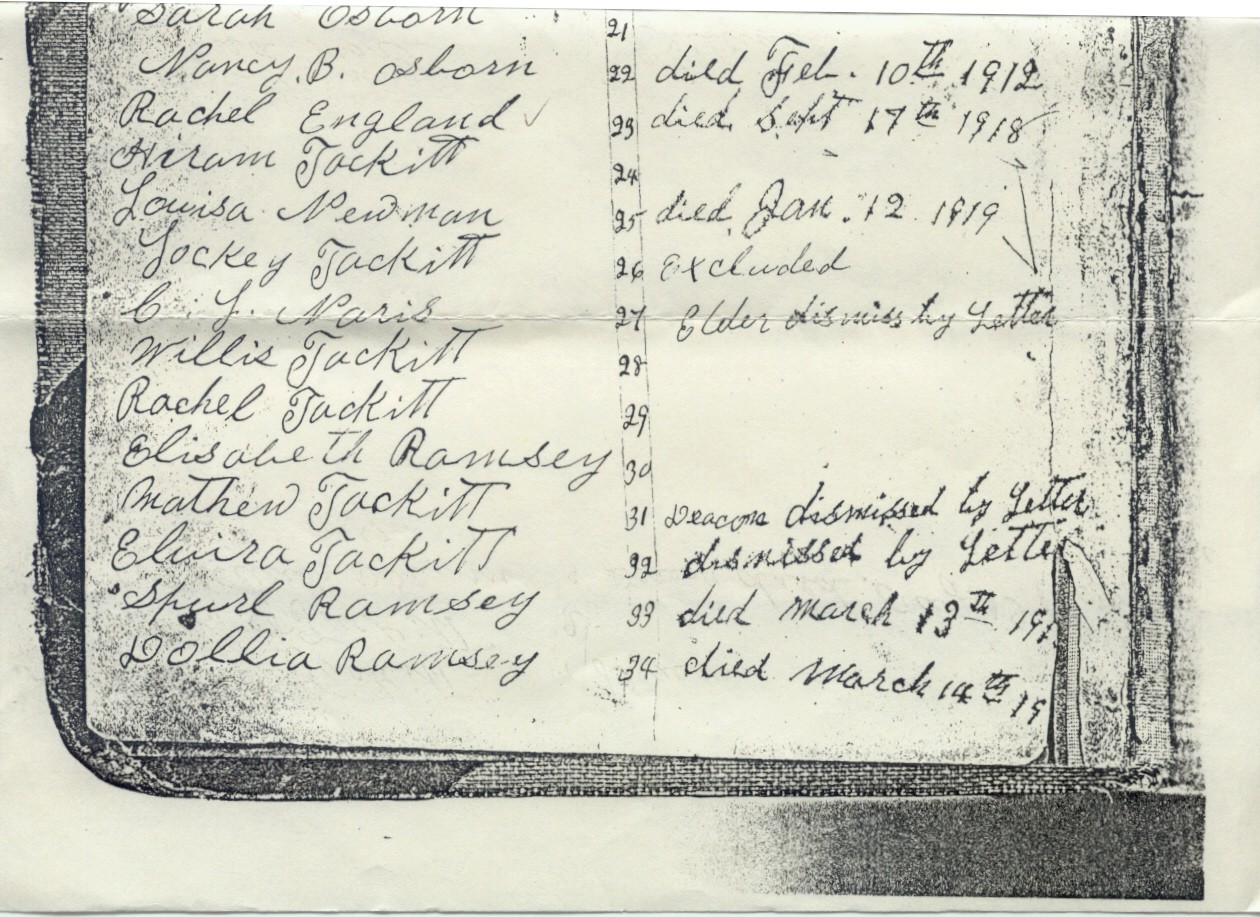 Sarah Osborn 21
Nancy. B. Osborn 22 died Feb. 10th 1912
Rachel England 23 died Sept 17th 1918
Hiram Tackitt 24
Louisa Newman 25 died Jan. 12 1919
Lockey Tackitt 26 Excluded
C. L. Naris 27 Elder dismiss by Letter
Willis Tackitt 28
Rachel Tackitt 29
Elisabeth Ramsey 30
Mathew Tackitt 31 Deacon dismissed by Letter
Elvira Tackitt 32 dismissed by Letter
Spurl Ramsey 33 died march 13th 191
Dollia Ramsey 34 died March 14th 19